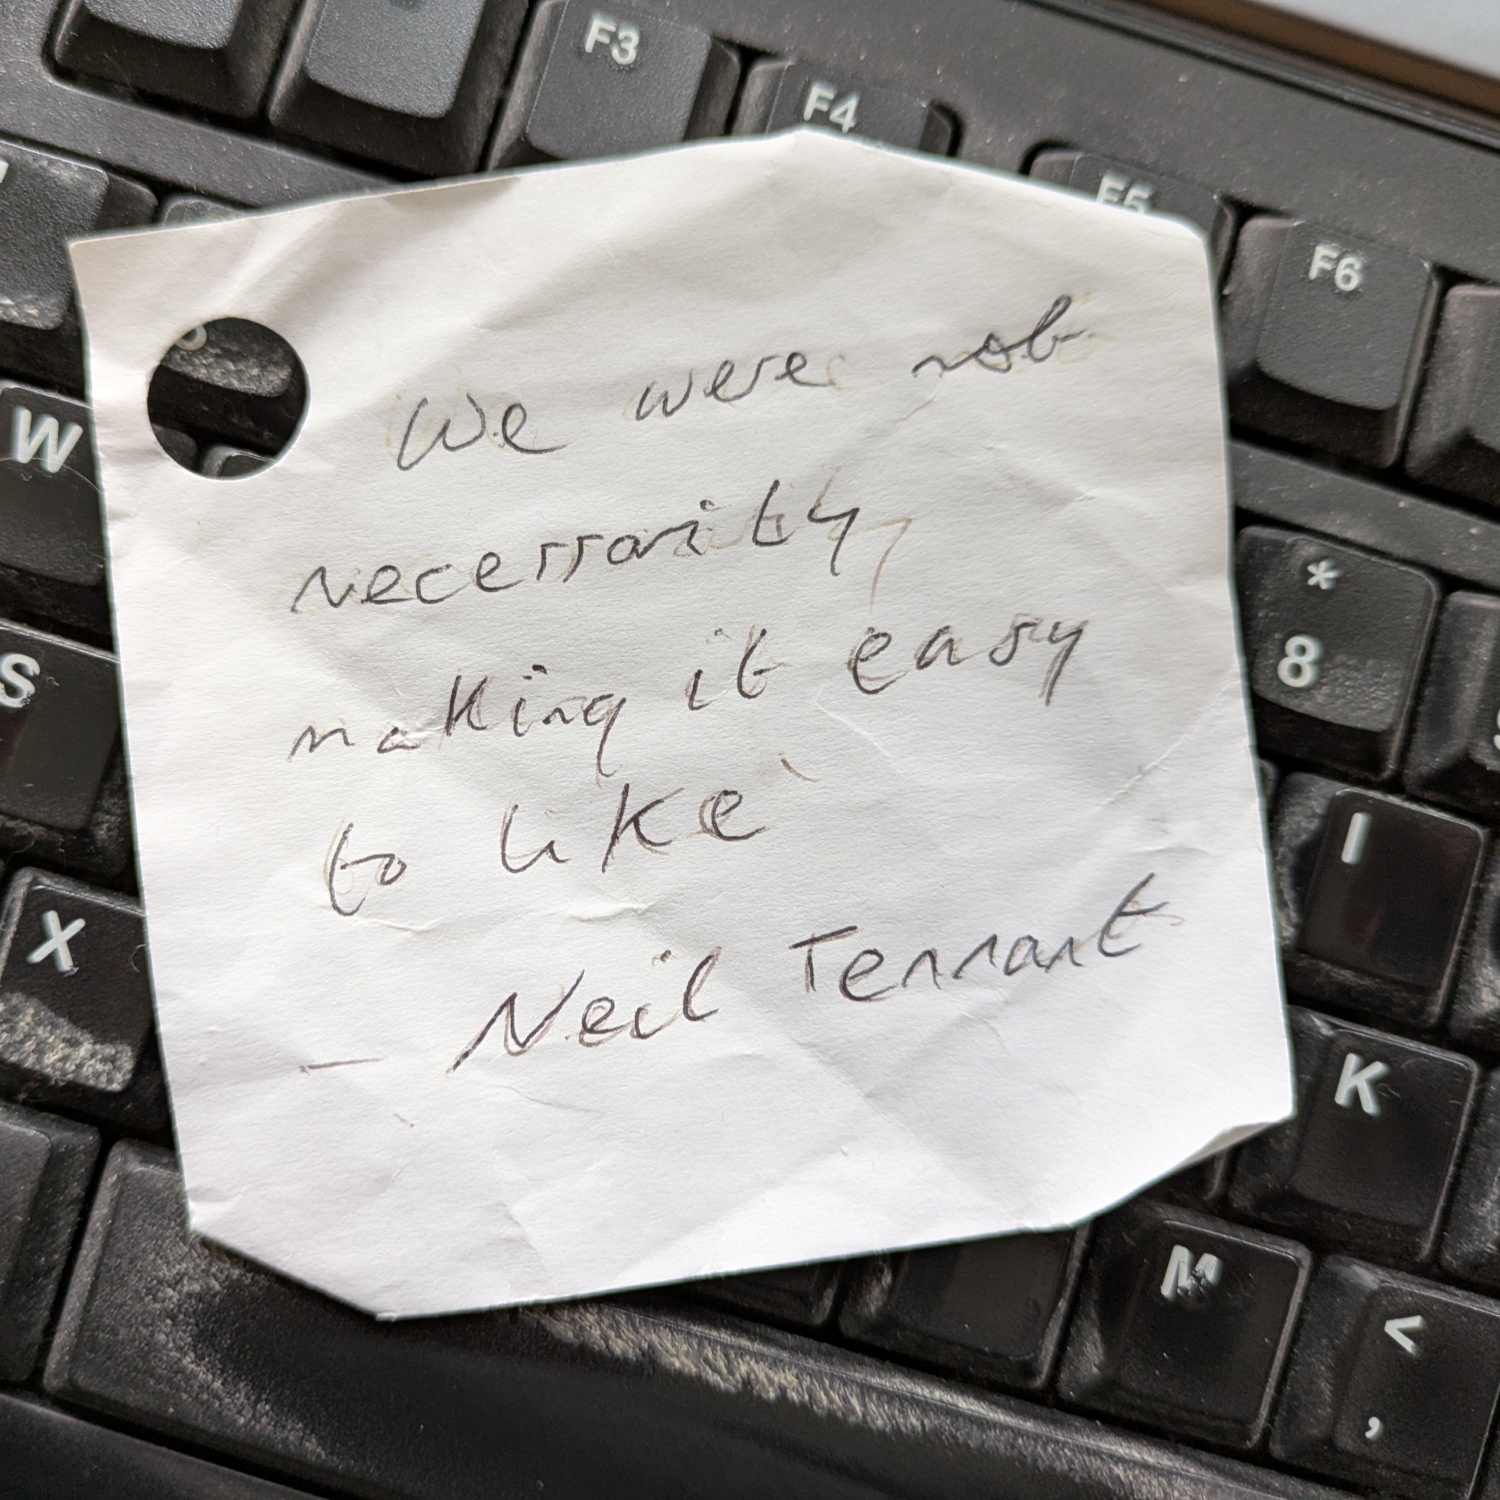 F3
F4
F5
F6
W
We were not
necessarily
making it easy
to like
— Neil Tennant
*
8
S
I
X
K
M
<
,